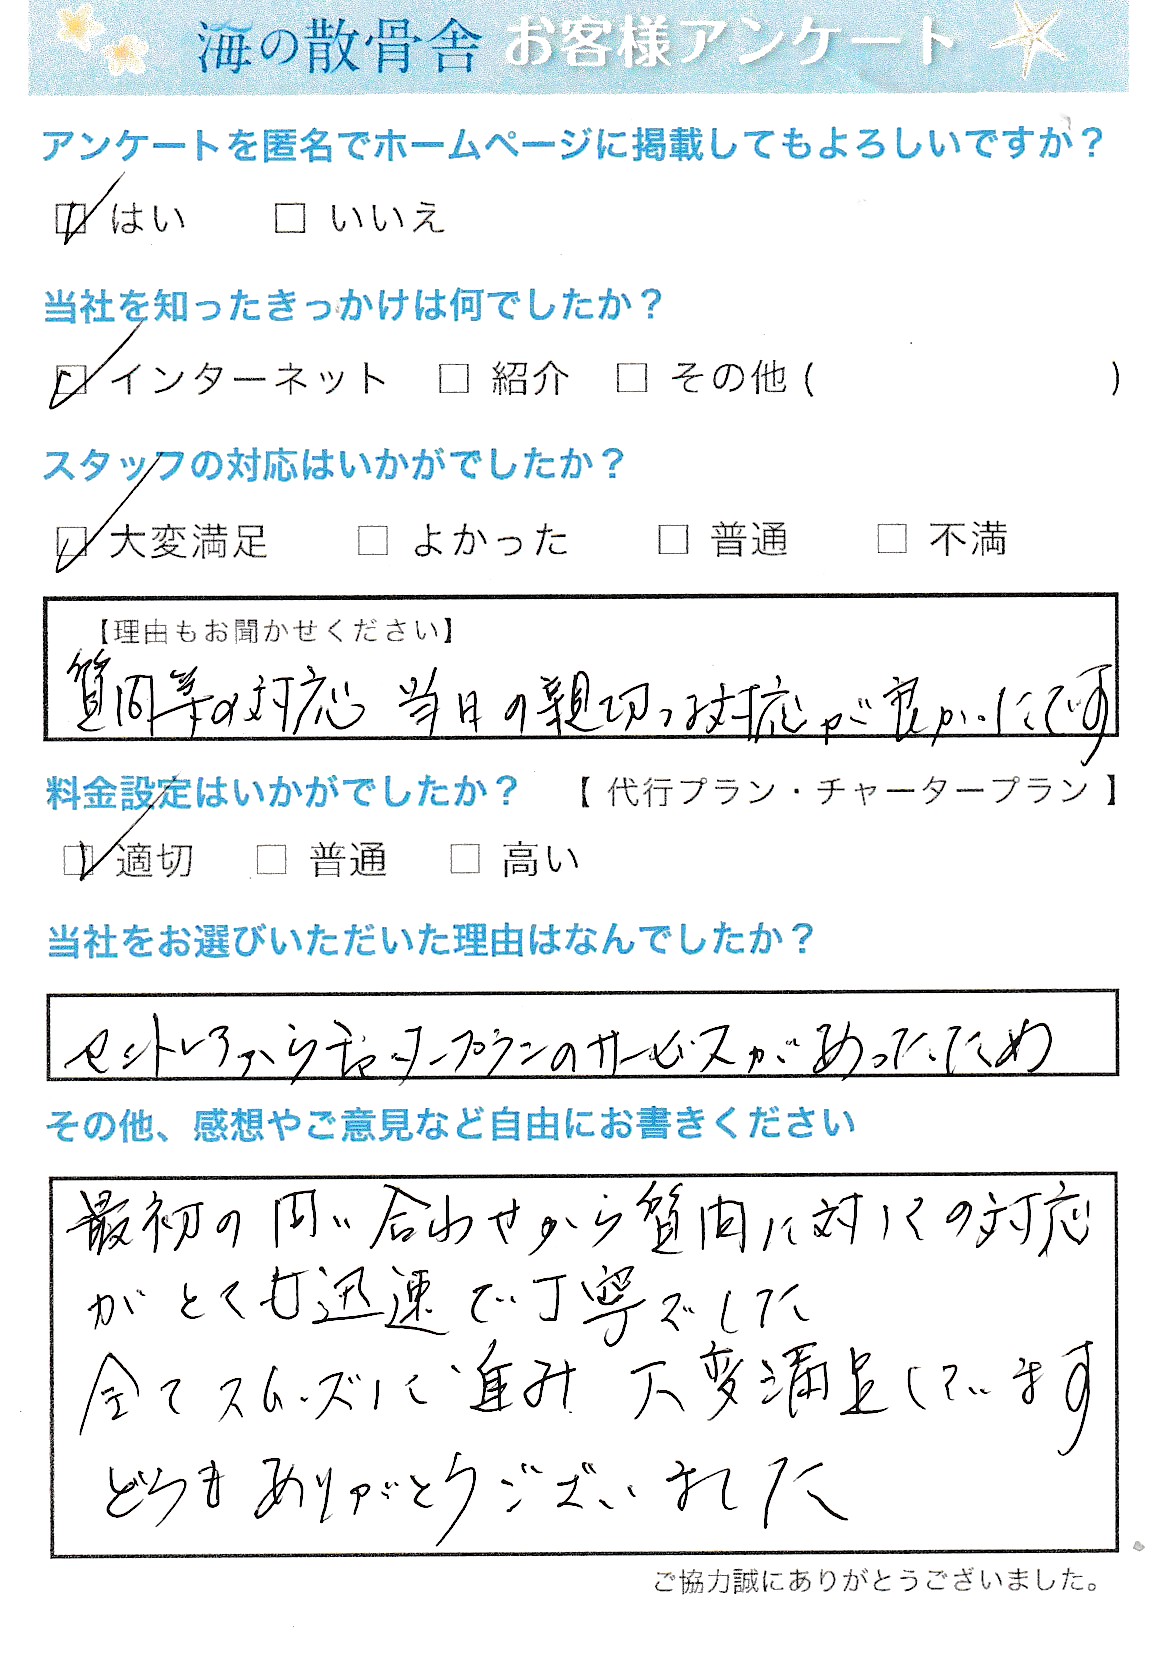 海の散骨舎 お客様アンケート
アンケートを匿名でホームページに掲載してもよろしいですか？
☑ はい □ いいえ
当社を知ったきっかけは何でしたか？
☑ インターネット □ 紹介 □ その他 ( )
スタッフの対応はいかがでしたか？
☑ 大変満足 □ よかった □ 普通 □ 不満
【理由もお聞かせください】
質問等の対応 当日の親切な対応が良かったです
料金設定はいかがでしたか？ 【 代行プラン・チャータープラン 】
☑ 適切 □ 普通 □ 高い
当社をお選びいただいた理由はなんでしたか？
セントレアからチャータープランのサービスがあったため
その他、感想やご意見など自由にお書きください
最初の問い合わせから質問に対しての対応
がとても迅速で丁寧でした
全てスムーズに進み 大変満足しています
どうもありがとうございました
ご協力誠にありがとうございました。